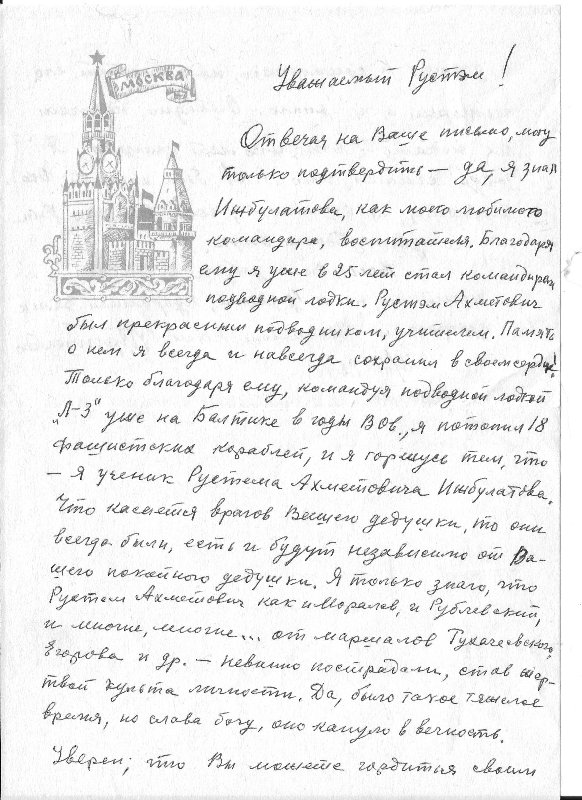 МОСКВА
Уважаемый Рустэм!
Отвечая на Ваше письмо, могу
только подтвердить — да, я знал
Инжбулатова, как моего любимого
командира, воспитателя. Благодаря
ему я уже в 25 лет стал командиром
подводной лодки. Рустэм Ахметович
был прекрасным подводником, учителем. Память
о нем я всегда и навсегда сохранил в своем сердце!
Только благодаря ему, командуя подводной лодкой
„Л-3" уже на Балтике в годы ВОв., я потопил 18
фашистских кораблей, и я горжусь тем, что
– я ученик Рустема Ахметовича Инжбулатова.
Что касается врагов Вашего дедушки, то они
всегда были, есть и будут независимо от Ва-
шего покойного дедушки. Я только знаю, что
Рустем Ахметович как и Моралев, и Рублевский,
и многие, многие... от маршалов Тухачевского,
Егорова и др. — невинно пострадали, став жер-
твой культа личности. Да, было такое тяжелое
время, но слава богу, оно кануло в вечность.
Уверен, что Вы можете гордиться своим